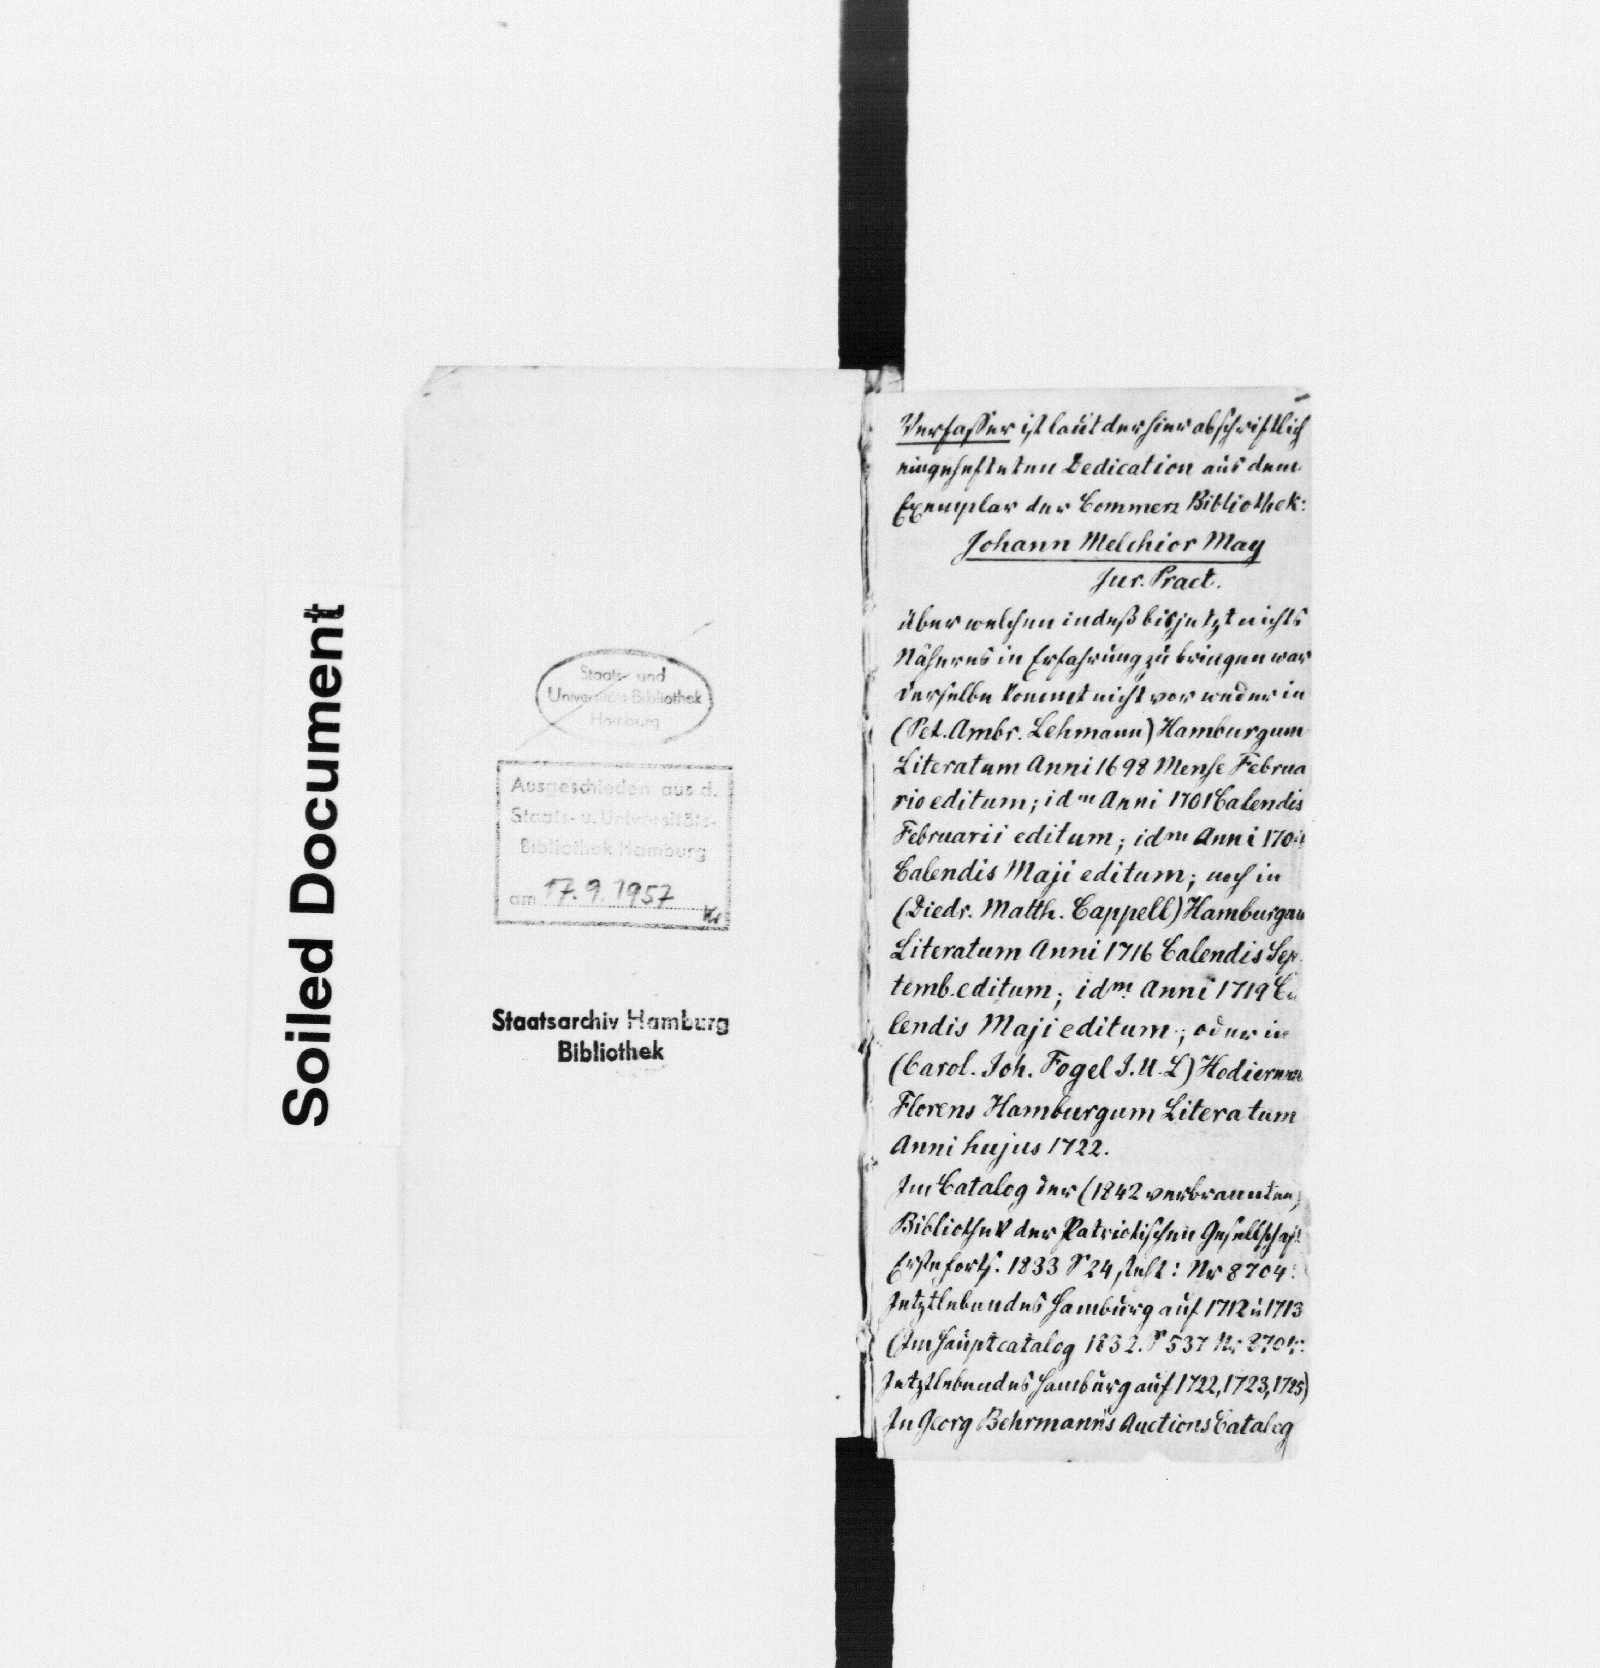 Soiled Document
Staats- und
Universitäts Bibliothek
Hamburg
Ausgeschieden aus d.
Staats- u. Universitäts-
Bibliothek Hamburg
am 17.9.1957
Staatsarchiv Hamburg
Bibliothek
Verfasser ist laut der hier abschriftlich
eingehefteten Dedication aus dem
Exemplar der Commerz Bibliothek:
Johann Melchior May
Jur. Pract.
über welchen indeß bis jetzt nichts
Näheres in Erfahrung zu bringen war
Derselbe kommt nicht vor weder in
(Pet. Ambr. Lehmann) Hamburgum
Literatum Anni 1698 Mense Februa
rio editum; idm Anni 1701 Calendis
Februarii editum; idm Anni 170
Calendis Maji editum; noch in
(Diedr. Matth. Cappell) Hamburgum
Literatum Anni 1716 Calendis Sep
temb. editum; idm Anni 1719 Ca
lendis Maji editum; oder in
(Carol. Joh. Fogel J.U.L) Hodiernum
Florens Hamburgum Literatum
Anni hujus 1722.
Im Catalog der (1842 verbrannten)
Bibliothek der Patriotischen Gesellschaft
Erste Forts. 1833 S 24, steht: Nr 8704:
Jetztlebendes Hamburg auf 1712 u 1713
(Im Hauptcatalog 1832. S 537 Nr 8704:
Jetztlebendes Hamburg auf 1722, 1723, 1725)
In Georg Behrmann's Auctions Catalog